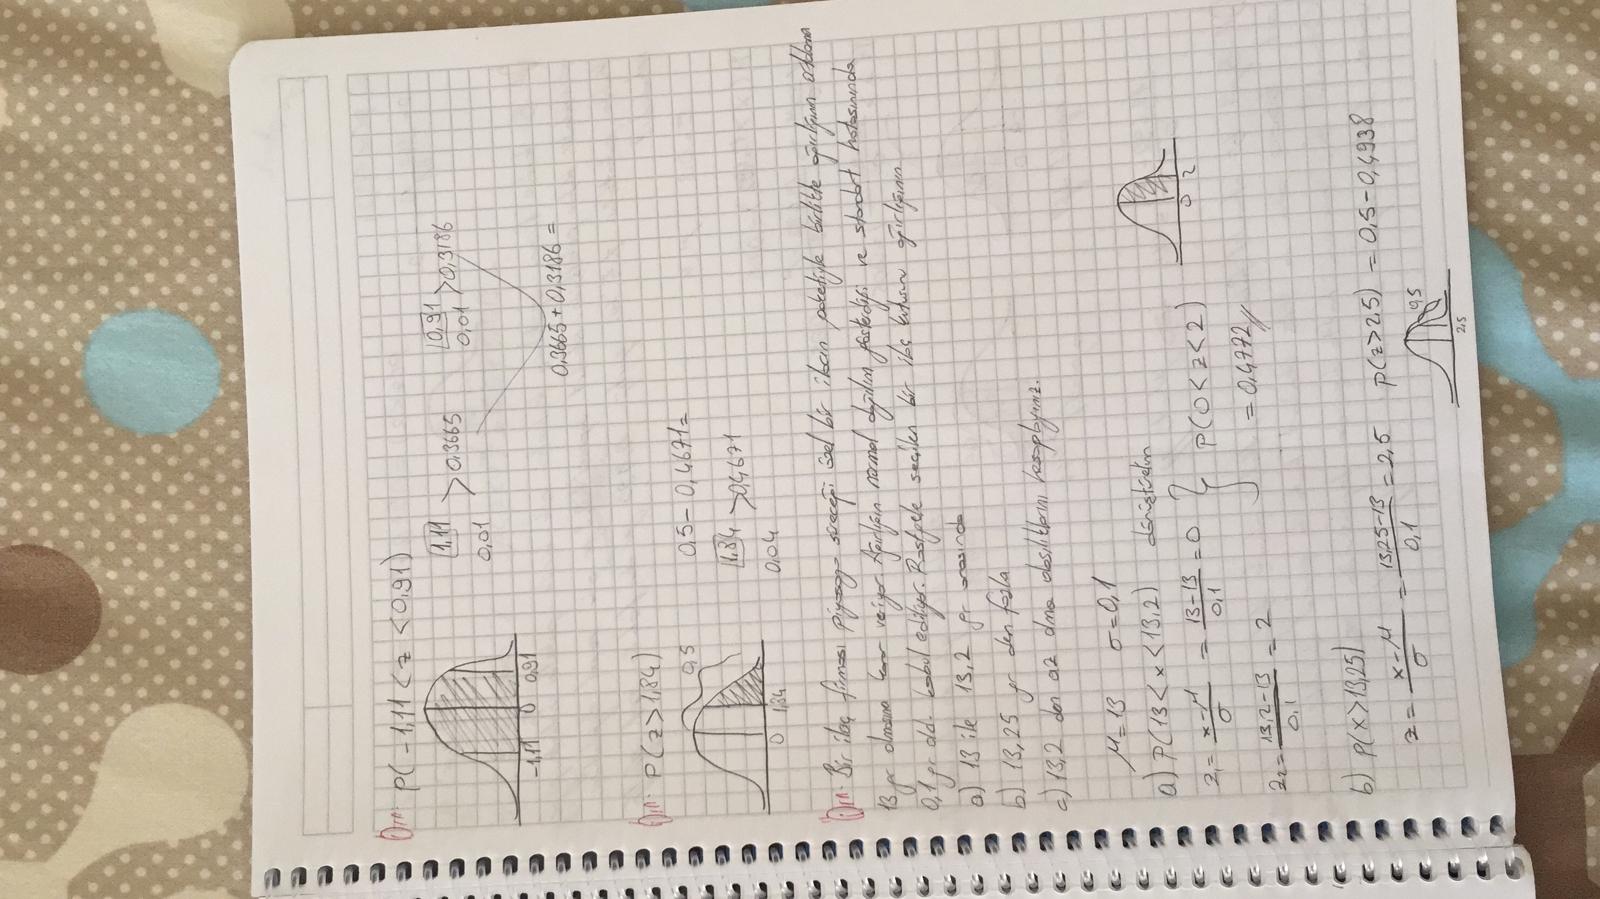 Örn: P(-1,11 < z < 0,91)
1,11
0,01 > 0,3665
0,91
0,01 > 0,3186
-1,11 0 0,91
0,3665 + 0,3186 =
Örn. P(z > 1,84)
0,5
0,5 - 0,4671 =
1,84
0,04 > 0,4671
0 1,84
Örn. Bir ilaç firması piyasaya süreceği özel bir ilacın paketiyle birlikte ağırlığının ortalama
13 gr olmasına karar veriyor Ağırlığın normal dağılım gösterdiği ve standart hatasınında
0,1 gr old. kabul ediliyor. Rastgele seçilen bir ilaç kutusunu ağırlığının
a) 13 ile 13,2 gr arasında
b) 13,25 gr den fazla
c) 13,2 den az olma olasılıklarını hesaplayınız.
μ = 13 σ = 0,1
a) P(13 < x < 13,2) dönüştürelim
z₁ = x-μ / σ = 13-13 / 0,1 = 0
z₂ = 13,2-13 / 0,1 = 2
} P(0 < z < 2)
= 0,4772 //
0 2
b) P(x > 13,25)
z = x-μ / σ = 13,25-13 / 0,1 = 2,5 P(z > 2,5) = 0,5 - 0,4938
0,5
2,5